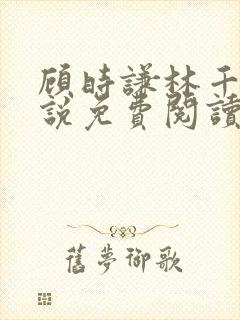 顧時謙林千
說免費閱讀
舊夢御歌